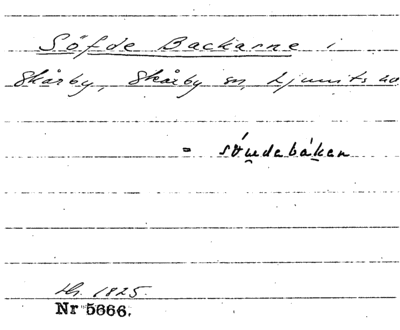 Söfde Backarne i
Skårby, Skårby sn, Ljunits hd
= söudebáken
Hr. 1825.
Nr 5666.